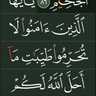 ٱلْجَحِيمِ ٨٦ يَٰٓأَيُّهَا
ٱلَّذِينَ ءَامَنُوا۟ لَا
تُحَرِّمُوا۟ طَيِّبَٰتِ مَآ
أَحَلَّ ٱللَّهُ لَكُمْ